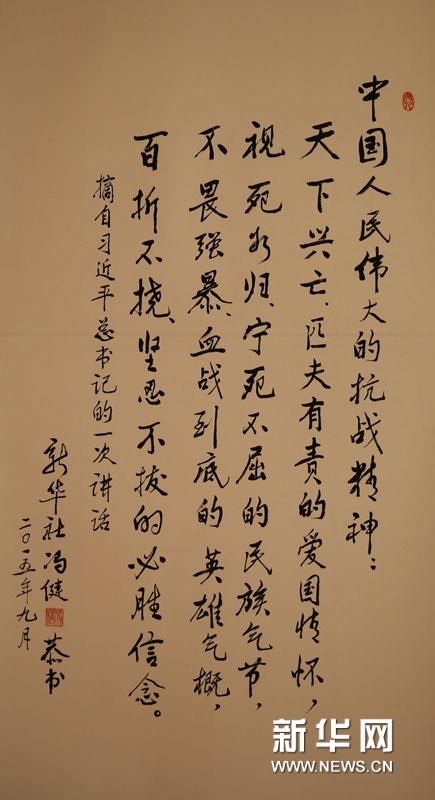 中国人民伟大的抗战精神：
天下兴亡、匹夫有责的爱国情怀，
视死如归、宁死不屈的民族气节，
不畏强暴、血战到底的英雄气概，
百折不挠、坚忍不拔的必胜信念。
摘自习近平总书记的一次讲话
新华社冯健 恭书
二〇一五年九月
新华网
WWW.NEWS.CN